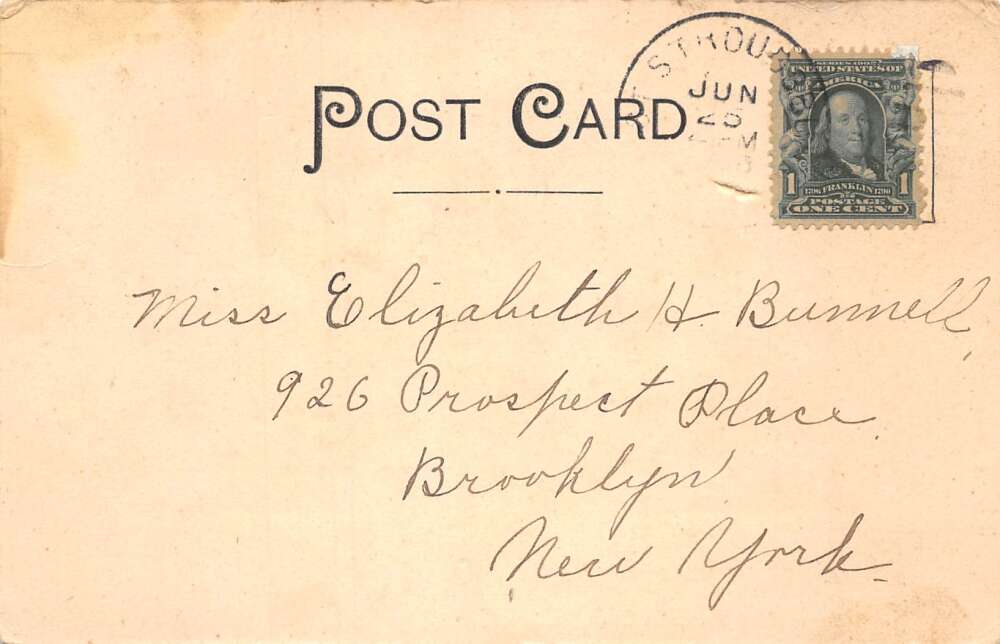 POST CARD
STROUDSBURG
JUN
SERIES 1902
UNITED STATES OF
AMERICA
1 1706 FRANKLIN 1790 1
POSTAGE
ONE CENT
Miss Elizabeth H. Bunnell,
926 Prospect Place.
Brooklyn
New York.